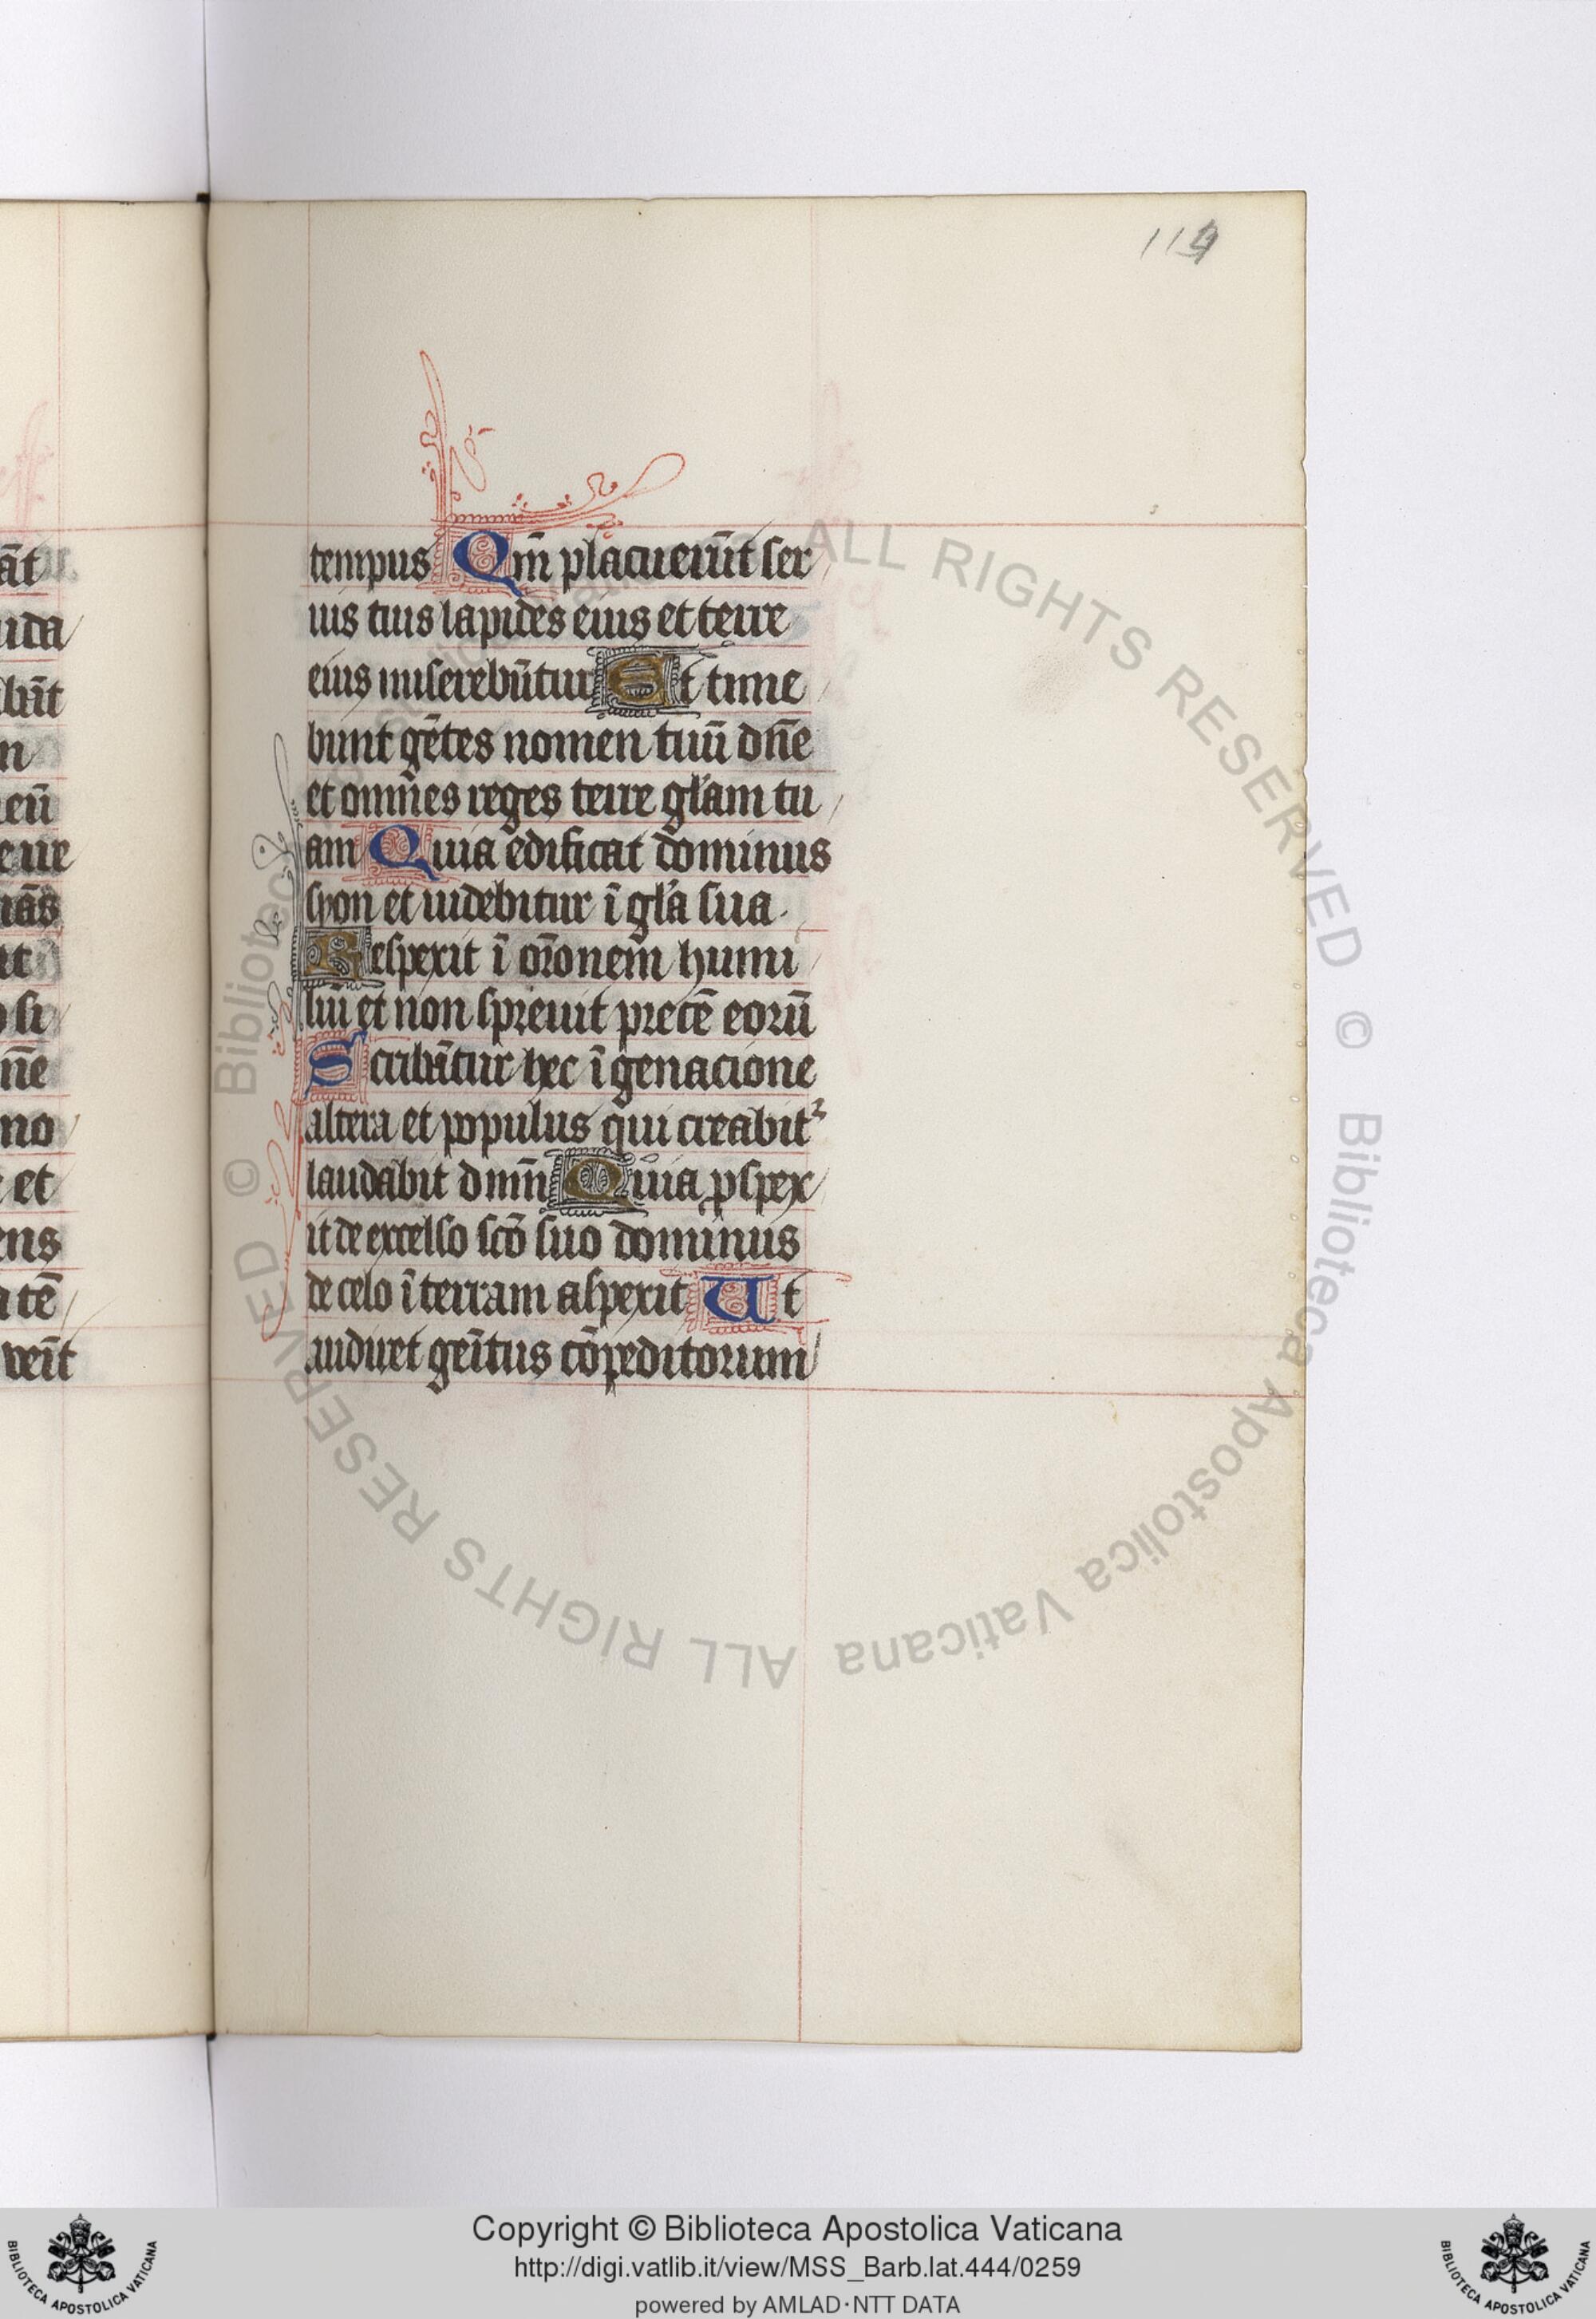 āt
uda
būt
n
eū
eue
nās
ut
o si
n̄e
no
et
ens
tē
veīt
119
tempus Qm̄ placuerūt ser
uis tuis lapides eius et terre
eius miserebūtur Et time
bunt gētes nomen tuū dn̄e
et omn̄es reges terre gl̄am tu
am Quia edificat dominus
syon et uidebitur ī gl̄a sua.
Respexit ī or̄onem humi
liū et non spreuit precē eorū
Scribātur hec ī genacione
altera et populus qui creabit²
laudabit dnm̄ Quia ꝓspex
it de excelso sc̄o suo dominus
de celo ī terram aspexit Ut
audiret gēitus cōpeditorum
ALL RIGHTS RESERVED © Biblioteca Apostolica Vaticana ALL RIGHTS RESERVED © Biblioteca Apostolica Vaticana
Copyright © Biblioteca Apostolica Vaticana
http://digi.vatlib.it/view/MSS_Barb.lat.444/0259
powered by AMLAD·NTT DATA
BIBLIOTECA APOSTOLICA VATICANA
BIBLIOTECA APOSTOLICA VATICANA